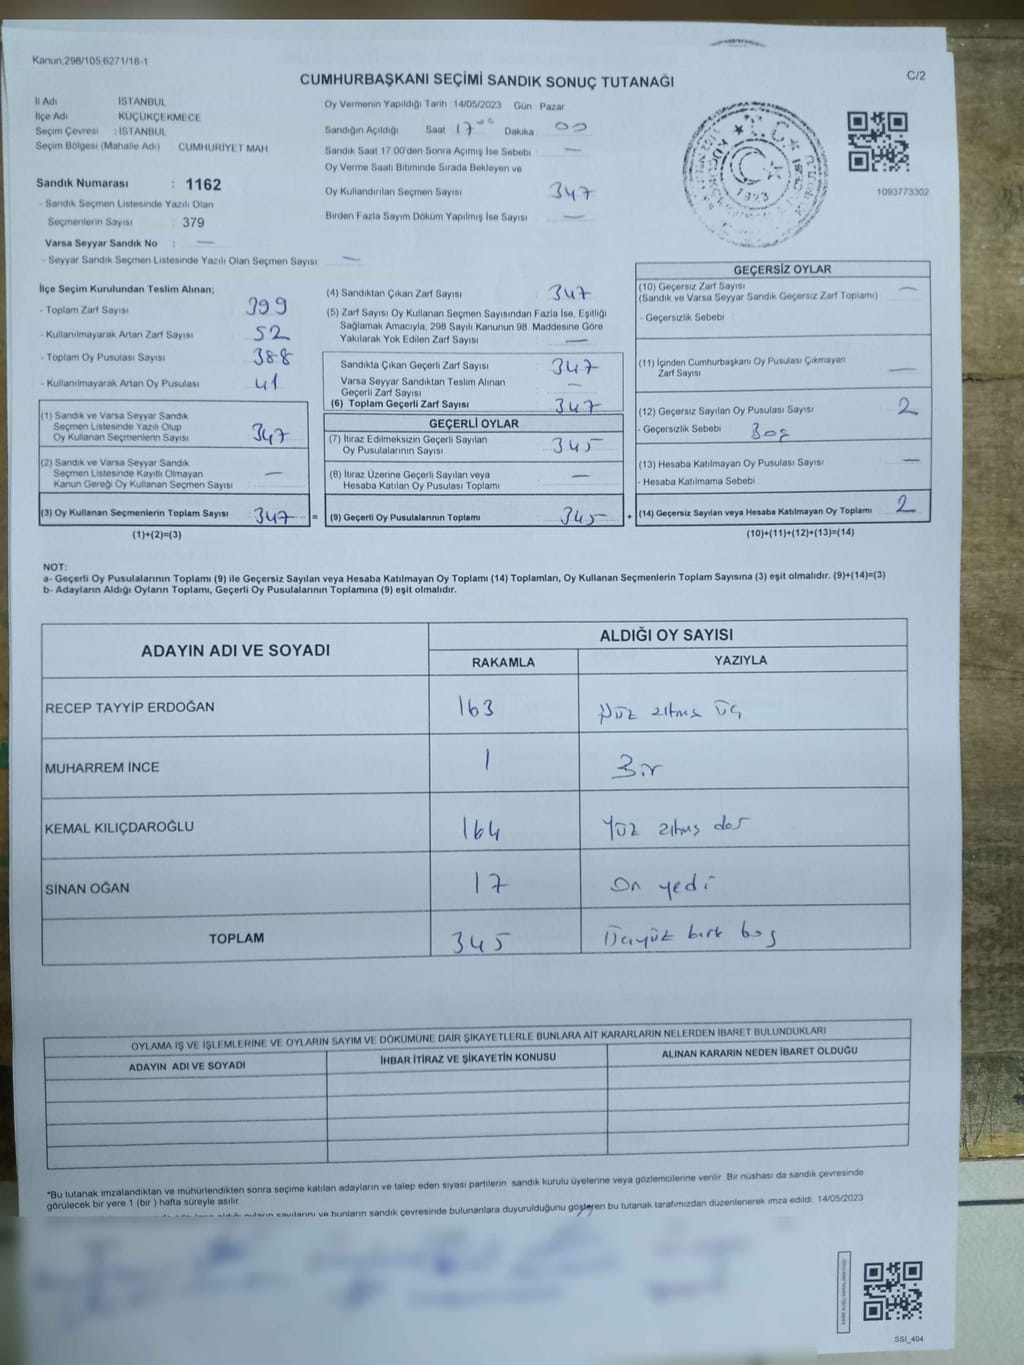 Kanun 298/105 6271/18-1
C/2
CUMHURBAŞKANI SEÇİMİ SANDIK SONUÇ TUTANAĞI
İl Adı : İSTANBUL
İlçe Adı KÜÇÜKÇEKMECE
Seçim Çevresi : İSTANBUL
Seçim Bölgesi (Mahalle Adı) CUMHURİYET MAH
Sandık Numarası : 1162
- Sandık Seçmen Listesinde Yazılı Olan
Seçmenlerin Sayısı : 379
Varsa Seyyar Sandık No : —
- Seyyar Sandık Seçmen Listesinde Yazılı Olan Seçmen Sayısı: —
Oy Vermenin Yapıldığı Tarih 14/05/2023 Gün Pazar
Sandığın Açıldığı Saat 17 00 Dakika 00
Sandık Saat 17.00'den Sonra Açımış İse Sebebi : —
Oy Verme Saati Bitiminde Sırada Bekleyen ve
Oy Kullandırılan Seçmen Sayısı 347
Birden Fazla Sayım Döküm Yapılmış İse Sayısı —
T.C.
1923
1093773302
İlçe Seçim Kurulundan Teslim Alınan;
- Toplam Zarf Sayısı 399
- Kullanılmayarak Artan Zarf Sayısı 52
- Toplam Oy Pusulası Sayısı 388
- Kullanılmayarak Artan Oy Pusulası 41
(1) Sandık ve Varsa Seyyar Sandık
Seçmen Listesinde Yazılı Olup
Oy Kullanan Seçmenlerin Sayısı 347
(2) Sandık ve Varsa Seyyar Sandık
Seçmen Listesinde Kayıtlı Olmayan
Kanun Gereği Oy Kullanan Seçmen Sayısı —
(3) Oy Kullanan Seçmenlerin Toplam Sayısı 347 =
(1)+(2)=(3)
(4) Sandıktan Çıkan Zarf Sayısı 347
(5) Zarf Sayısı Oy Kullanan Seçmen Sayısından Fazla İse, Eşitliği
Sağlamak Amacıyla, 298 Sayılı Kanunun 98. Maddesine Göre
Yakılarak Yok Edilen Zarf Sayısı : —
Sandıkta Çıkan Geçerli Zarf Sayısı 347
Varsa Seyyar Sandıktan Teslim Alınan
Geçerli Zarf Sayısı —
(6) Toplam Geçerli Zarf Sayısı 347
GEÇERLİ OYLAR
(7) İtiraz Edilmeksizin Geçerli Sayılan
Oy Pusulalarının Sayısı 345
(8) İtiraz Üzerine Geçerli Sayılan veya
Hesaba Katılan Oy Pusulası Toplamı —
(9) Geçerli Oy Pusulalarının Toplamı 345 +
GEÇERSİZ OYLAR
(10) Geçersiz Zarf Sayısı —
(Sandık ve Varsa Seyyar Sandık Geçersiz Zarf Toplamı)
- Geçersizlik Sebebi :
(11) İçinden Cumhurbaşkanı Oy Pusulası Çıkmayan
Zarf Sayısı —
(12) Geçersiz Sayılan Oy Pusulası Sayısı 2
- Geçersizlik Sebebi : Boş
(13) Hesaba Katılmayan Oy Pusulası Sayısı —
- Hesaba Katılmama Sebebi
(14) Geçersiz Sayılan veya Hesaba Katılmayan Oy Toplamı 2
(10)+(11)+(12)+(13)=(14)
NOT:
a- Geçerli Oy Pusulalarının Toplamı (9) ile Geçersiz Sayılan veya Hesaba Katılmayan Oy Toplamı (14) Toplamları, Oy Kullanan Seçmenlerin Toplam Sayısına (3) eşit olmalıdır. (9)+(14)=(3)
b- Adayların Aldığı Oyların Toplamı, Geçerli Oy Pusulalarının Toplamına (9) eşit olmalıdır.
ADAYIN ADI VE SOYADI
ALDIĞI OY SAYISI
RAKAMLA YAZIYLA
RECEP TAYYİP ERDOĞAN 163 Yüz altmış üç
MUHARREM İNCE 1 Bir
KEMAL KILIÇDAROĞLU 164 Yüz altmış dör
SİNAN OĞAN 17 On yedi
TOPLAM 345 Üçyüz kırk beş
OYLAMA İŞ VE İŞLEMLERİNE VE OYLARIN SAYIM VE DÖKÜMÜNE DAİR ŞİKAYETLERLE BUNLARA AİT KARARLARIN NELERDEN İBARET BULUNDUKLARI
ADAYIN ADI VE SOYADI İHBAR İTİRAZ VE ŞİKAYETİN KONUSU ALINAN KARARIN NEDEN İBARET OLDUĞU
*Bu tutanak imzalandıktan ve mühürlendikten sonra seçime katılan adayların ve talep eden siyasi partilerin sandık kurulu üyelerine veya gözlemcilerine verilir. Bir nüshası da sandık çevresinde
görülecek bir yere 1 (bir ) hafta süreyle asılır.
sayılarını ve bunların sandık çevresinde bulunanlara duyurulduğunu gösteren bu tutanak tarafımızdan düzenlenerek imza edildi 14/05/2023
SSI_404